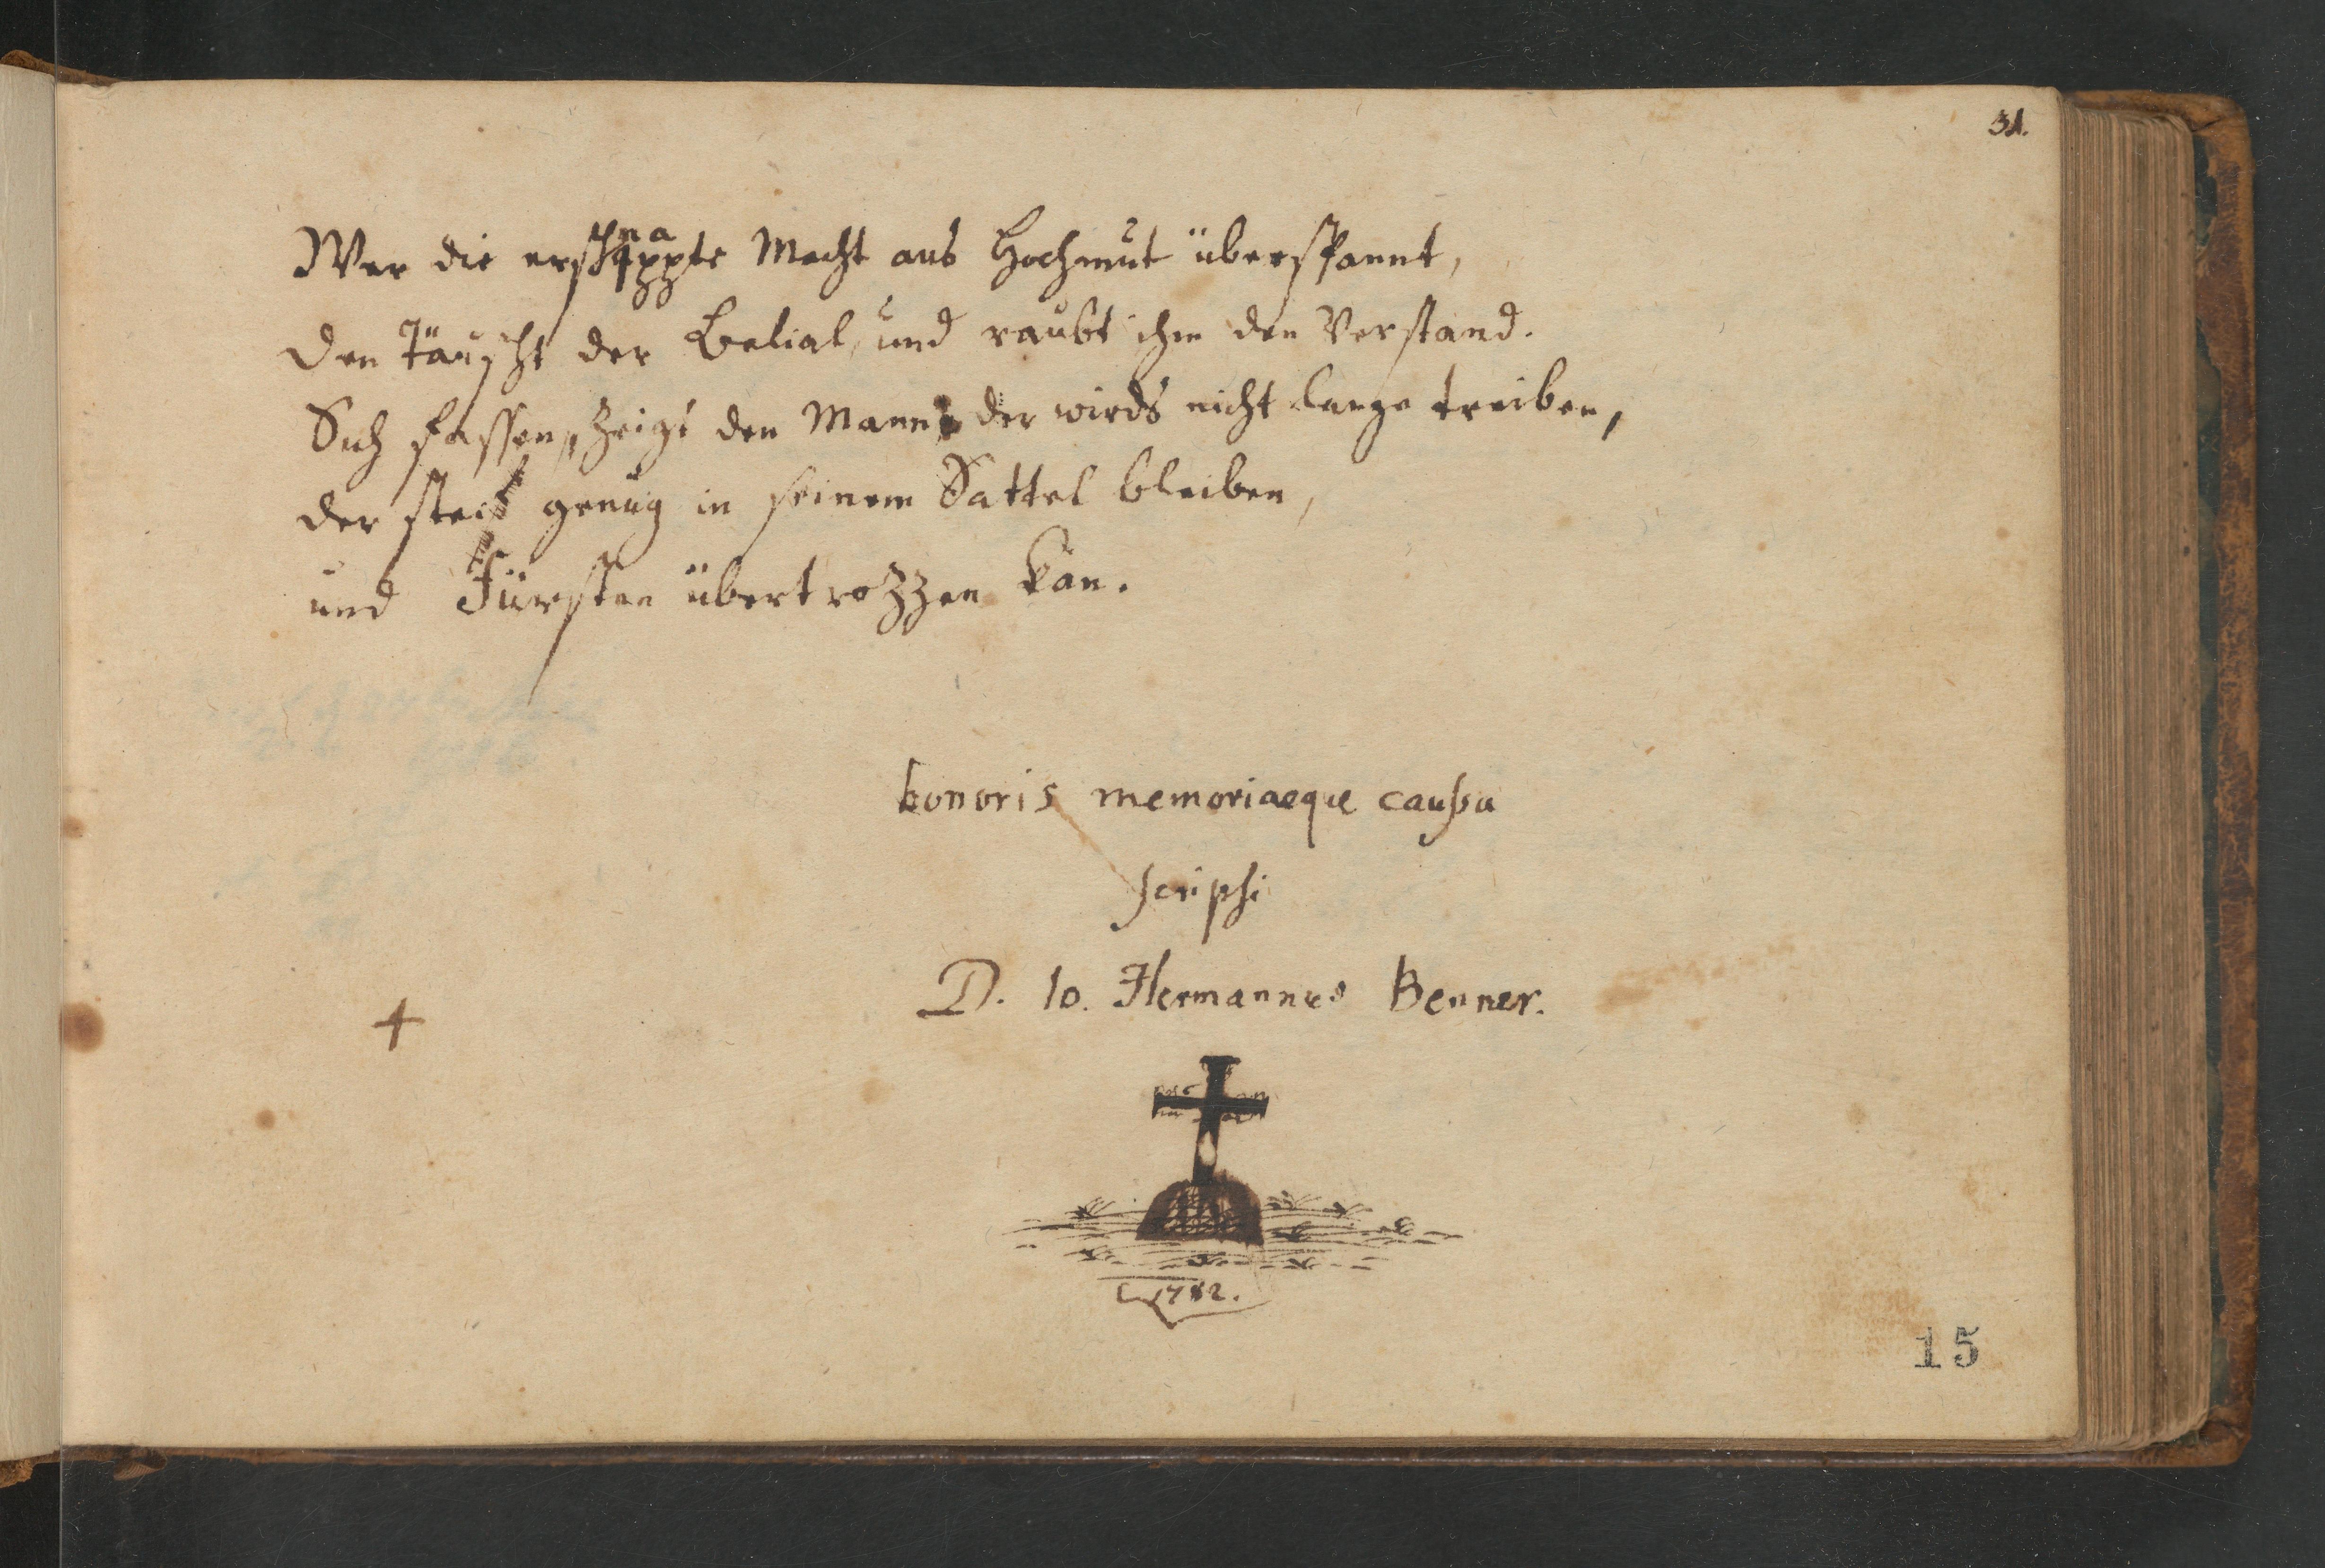 31.
Wer die erschnappte Macht aus Hochmut überspannt,
den täuscht der Belial, und raubt ihm den Verstand.
Sich fassen, zeigt den Mann; der wirds nicht lange treiben,
der steif genug in seinem Sattel bleiben,
und Fürsten übertrozzen kan.
honoris memoriaeque caussa
scripsi
D. Io. Hermannus Benner.
1782.
15